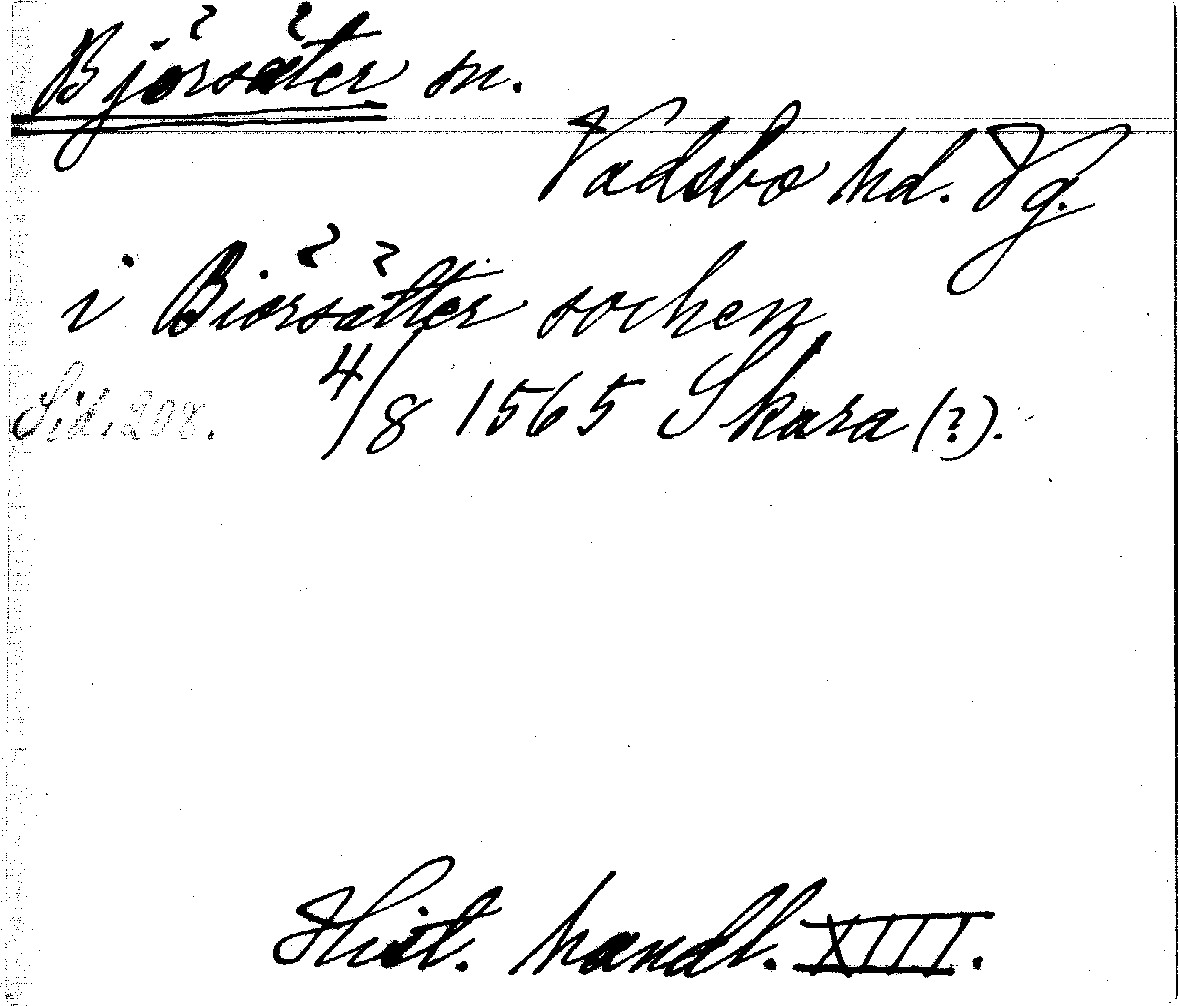 Björsäter sn.
Vadsbo hd. Vg.
i Biörsätter sochen
Sid. 208. 4/8 1565 Skara (?).
Hist. handl. XIII.